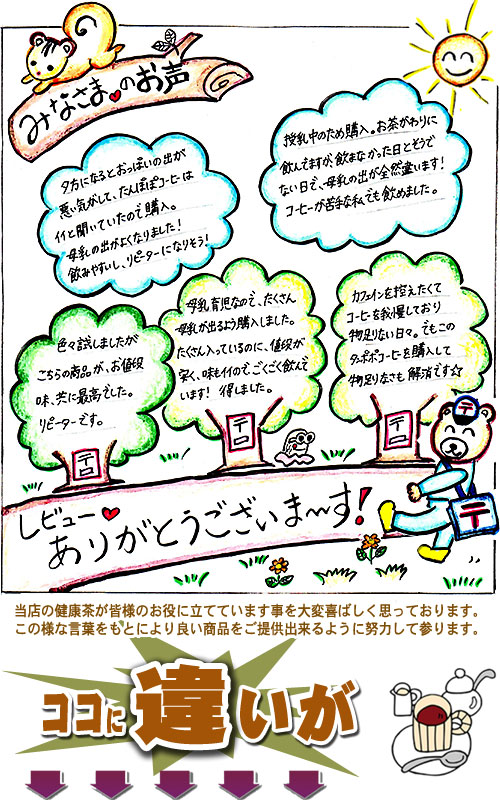 みなさま♥のお声
夕方になるとおっぱいの出が
悪い気がして、たんぽぽコーヒーは
イイと聞いていたので購入。
母乳の出がよくなりました!
飲みやすいし、リピーターになりそう!
授乳中のため購入。お茶がわりに
飲んでますが、飲まなかった日とそうで
ない日で、母乳の出が全然違います!
コーヒーが苦手な私でも飲めました。
色々試しましたが
こちらの商品が、お値段
味、共に最高でした。
リピーターです。
母乳育児なので、たくさん
母乳が出るよう購入しました。
たくさん入っているのに、値段が
安く、味もイイのでごくごく飲んで
います! 得しました。
カフェインを控えたくて
コーヒーを我慢しており
物足りない日々。でもこの
タンポポコーヒーを購入して
物足りなさも解消です☆
〒
〒
〒
〒
〒
レビュー♥
ありがとうございま〜す!
当店の健康茶が皆様のお役に立てています事を大変喜ばしく思っております。
この様な言葉をもとにより良い商品をご提供出来るように努力して参ります。
ココに違いが